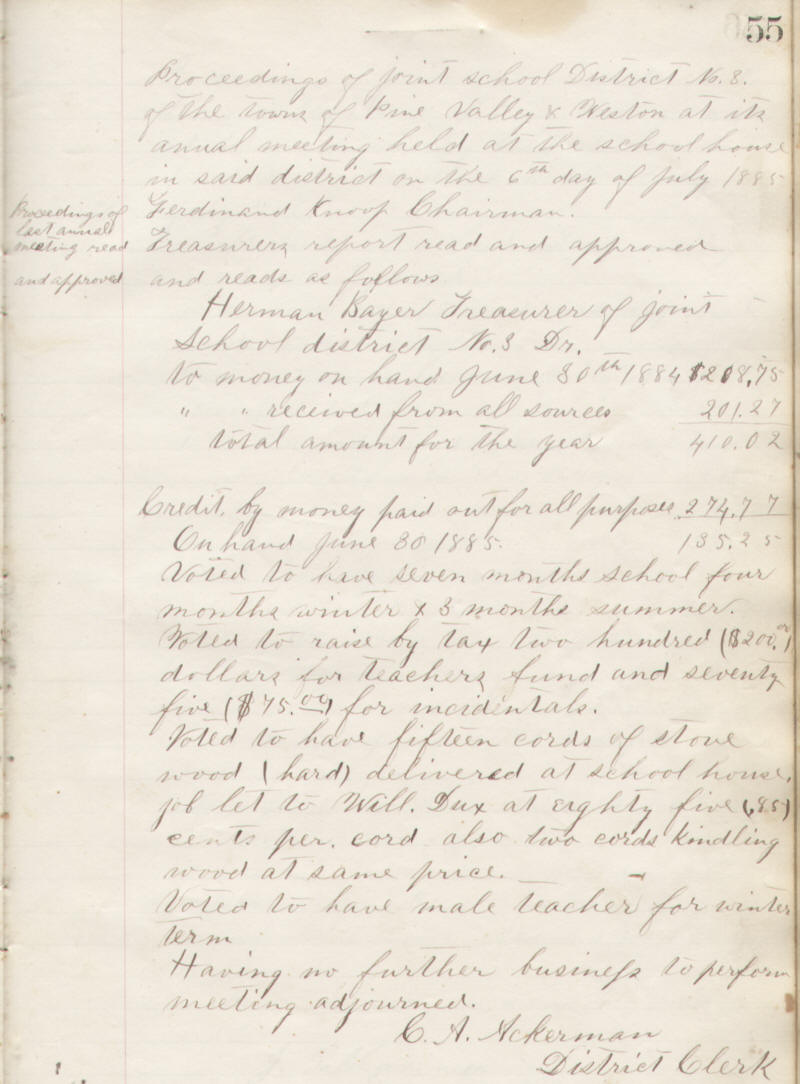 55
Proceedings of joint school District No. 3.
of the towns of Pine Valley & Weston at its
anual meeting held at the school house
in said district on the 6th day of July 1885
Proceedings of
last annual
meeting read
and approved
Ferdinand Knoop Chairman.
Treasurers report read and approved
and reads as follows
Herman Bayer Treasurer of joint
School district No. 3 Dr.
to money on hand June 30th 1884 $208,75
" " received from all sources 201.27
total amount for the year 410.02
Credit. by money paid out for all purposes. 274.77
On hand June 30 1885. 135.25
Voted to have seven months school four
months winter & 3 months summer.
Voted to raise by tax two hundred ($200.00)
dollars for teachers fund and seventy
five ($75.00) for incidentals.
Voted to have fifteen cords of stove
wood (hard) delivered at school house.
job let to Will. Dux at eighty five (.85)
cents per. cord also two cords kindling
wood at same price.
Voted to have male teacher for winter
term
Having no further business to perform
meeting adjourned.
C. A. Ackerman
District Clerk